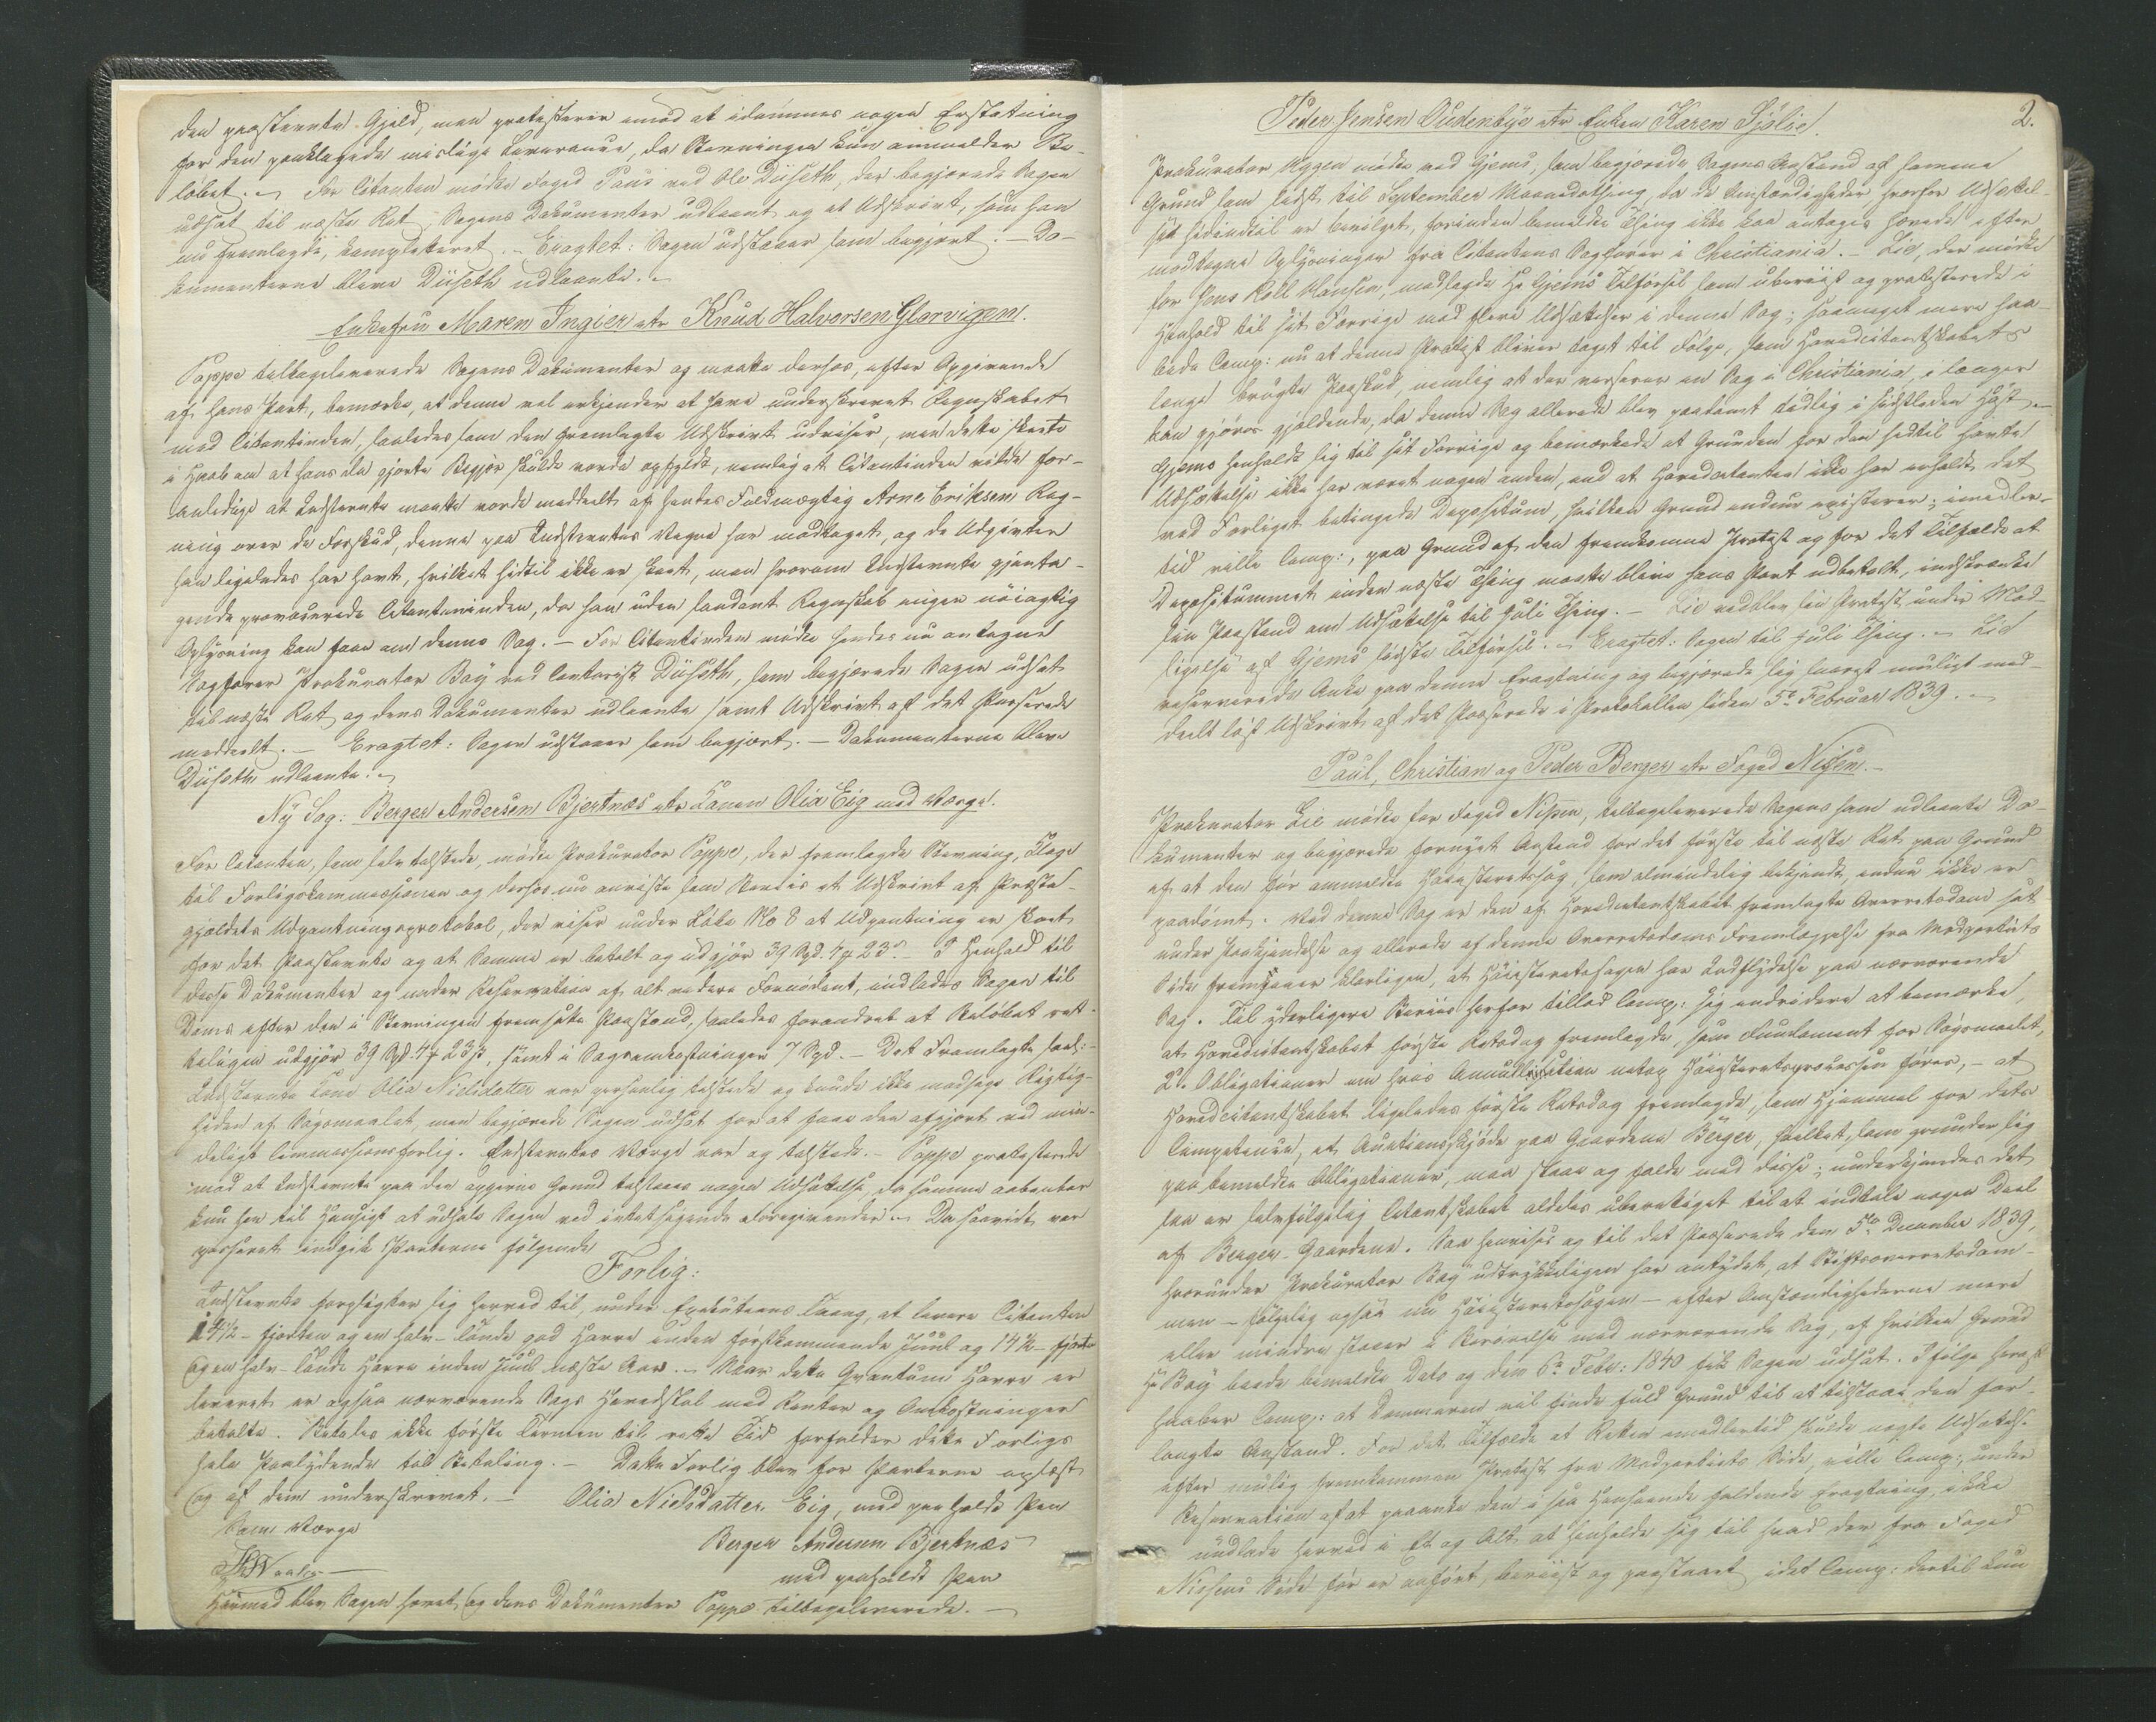 den paastevnte Gjeld, men protesterer imod at idømmes nogen Erstatning
for den paaklagede mislige Leverance, da Stevningen kun ommelder Be-
løbet. – For Citanten mødte Foged Paus ved Ole Düseth, der begjærede Sagen
udsat til næste Ret, Sagens Dokumenter udlaant og et Udskrivt, som han
nu fremlagde, kompletteret. – Eragtet: Sagen udstaaer som begjært. – Do-
kumenterne bleve Düseth udlaante. –
Enkefru Maren Ingier ctr Knud Halvorsen Glarvigen.
Poppe tilbageleverede Sagens Dokumenter og maatte derhos, efter Opgivende
af hans Part, bemærke, at denne vel erkjender at have underskrevet Regnskabet
med Citantinden, saaledes som den fremlagte Udskrivt udviser, men dette skeete
i Haab om at hans da gjorte Begjær skulde vorde opfyldt, nemlig at Citantinden vilde for-
anledige at Indstevnte maatte vorde meddeelt af hendes Fuldmægtig Arne Eriksen Reg-
ning over de Forskud, denne paa Indstevntes Vegne har modtaget, og de Udgivter
han ligeledes har havt, hvilket hidtil ikke er skeet, men hvorom Indstevnte gjenta-
gende provocerede Citantinden, da han uden saadant Regnskab ingen nøiagtig
Oplysning kan faae om denne Sag. – For Citantinden mødte hendes nu antagne
Sagfører Prokurator Bøy ved Contorist Düseth, som begjærede Sagen udsat
til næste Ret og dens Dokumenter udlaante samt Udskrivt af det Passerede
meddeelt. – Eragtet: Sagen udstaaer som begjært. – Dokumenterne bleve
Düseth udlaante. –
Ny Sag: Berger Andersen Bjertnæs ctr Konen Olia Eig med Værge.
For Citanten, som selv tilstede, mødte Prokurator Poppe, der fremlagde Stevning, Klage
til Forligskommissionen og derhos nu anviste som Beviis et Udskrivt af Præste-
gjældets Udpantningsprotokol, der viser under Løbe No 8 at Udpantning er skeet
for det Paastevnte og at Samme er betalt og udgjør 39 Spd. 4 ₰ 23 s. – I Henhold til
disse Dokumenter og under Reservation af alt videre Fornødent, indlades Sagen til
Doms efter den i Stevningen fremsatte Paastand, saaledes forandret at Beløbet ret-
teligen udgjør 39 Spd. 4 ₰ 23 s, samt i Sagsomkostninger 7 Spd. – Det Fremlagte saal: –
Indstevnte Kone Olia Nielsdatter var personlig tilstede og kunde ikke modsige Rigtig-
heden af Søgsmaalet, men begjærede Sagen udsat for at faae den afgjort ved min-
deligt Commissionsforlig. Indstevntes Værge var og tilstede. – Poppe protesterede
mod at Indstevnte paa den opgivne Grund tilstaaes nogen Udsættelse, da samme aabenbar
kun har til Hensigt at udhale Sagen ved intetsigende Foregivender. – Da saavidt var
passeret indgik Parterne følgende
Forlig:
Indstevnte forpligter sig herved til, under Executions Tvang, at levere Citanten
14½ – fjorten og en halv – Tønde god Havre inden førstkommende Juul og 14½ – fjorten
og en halv – Tønde Havre inden Juul næste Aar. – Naar dette Qvantum Havre er
leveret er ogsaa nærværende Sags Hovedstol med Renter og Omkostninger
betalte. Betales ikke første Termin til rette Tid forfalder dette Forligs
hele Paalydende til Betaling. – Dette Forlig blev for Parterne oplæst
og af dem underskrevet. – Olia Nielsdatter Eig, med paaholdt Pen
Som Værge
Berger Andersen Bjertnæs
med paaholdt Pen
Hermed blev Sagen hævet, og dens Dokumenter Poppe tilbageleverede. –
2.
Peder Jensen Oudenbye ctr Enken Karen Sjølie.
Prokurator Wggen mødte ved Gjems, som begjærede Sagens Anstand af samme
Grund som sidst til September Maanedsthing, da de Omstændigheder hvorfor Udsættel-
sen hidindtil er bevilget, forinden bemeldte Thing ikke kan antages hævede efter
modtagne Oplysninger fra Citantens Sagfører i Christiania. – Lie, der mødte
for Jens Roll Hansen, modsagde Hr Gjems Tilførsel som ubeviist og protesterede i
Henhold til sit Forrige mod flere Udsættelser i denne Sag; saameget mere haa-
bede Comp: nu at denne Protest bliver taget til Følge, som Hovedcitantskabets
længe brugte Paaskud, nemlig at der verserer en Sag i Christiania, ei længer
kan gjøres gjældende, da denne Sag allerede blev paadømt tidlig i sidstleden Høst. –
Gjems henholdt sig til sit Forrige og bemærkede at Grunden for den hidtil havte
Udsættelse ikke har været nogen anden, end at Hovedcitanten ikke har erholdt det
ved Forliget betingede Depositum, hvilken Grund endnu existerer; imedler-
tid ville Comp:, paa Grund af den fremkomne Protest og for det Tilfælde at
Depositummet inden næste Thing maatte blive hans Part udbetalt, indskrænke
sin Paastand om Udsættelse til Juli Thing. – Lie vedblev sin Protest under Mod-
sigelse af Gjems sidste Tilførsel. – Eragtet: Sagen til Juli Thing. – Lie
reserverede Anke paa denne Eragtning og begjærede sig snarest muligt med-
deelt løst Udskrivt af det Passerede i Protokollen siden 5te Februar 1839. –
Paul, Christian og Peder Berger ctr Foged Nissen. –
Prokurator Lie mødte for Foged Nissen, tilbageleverede Sagens ham udlaante Do-
kumenter og begjærede fornyet Anstand for det første til næste Ret paa Grund
af at den før ommeldte Høiesteretssag, som almindelig bekjendt, endnu ikke er
paadømt. Ved denne Sag er den af Hovedcitantskabet fremlagte Overretsdom sat
under Paakjendelse og allerede af denne Overretsdoms Fremlæggelse fra Modpartiets
Side fremgaaer klarligen, at Høiesteretssagen har Indflydelse paa nærværende
Sag. Til yderligere Beviis herfor tillod Comp: sig endvidere at bemærke,
at Hovedcitantskabet første Retsdag fremlagde, som Fundament for Søgsmaalet,
2de Obligationer om hvis Annullation netop Høiesteretsprocessen føres, – at
Hovedcitantskabet ligeledes første Retsdag fremlagde, som Hjemmel for dets
Competence, et Auctionsskjøde paa Gaardene Berger, hvilket, som grunder sig
paa bemeldte Obligationer, maa staae og falde med disse; underkjendes det
saa er selvfølgelig Citantskabet aldeles uberettiget til at indtale nogen Deel
af Berger-Gaardene. Saa henvises og til det Passerede den 5te December 1839,
hvorunder Prokurator Bøy udtrykkeligen har antydet, at Stiftsoverretsdom-
men – følgelig ogsaa nu Høiesteretssagen – efter Omstændighederne mere
eller mindre staaer i Berørelse med nærværende Sag, af hvilken Grund
Hr Bøy baade bemeldte Dato og den 6te Febr: 1840 fik Sagen udsat. Ifølge heraf
haaber Comp: at Dommeren vil finde fuld Grund til at tilstaae den for-
langte Anstand. For det Tilfælde at Retten imedlertid skulde negte Udsættelse
efter mulig fremkommen Protest fra Modpartiets Side, ville Comp:, under
Reservation af at paaanke den i saa Henseende faldende Eragtning, ikke
undlade herved i Et og Alt at henholde sig til hvad der fra Foged
Nissens Side før er anført, beviist og paastaaet, idet Comp: dertil kun